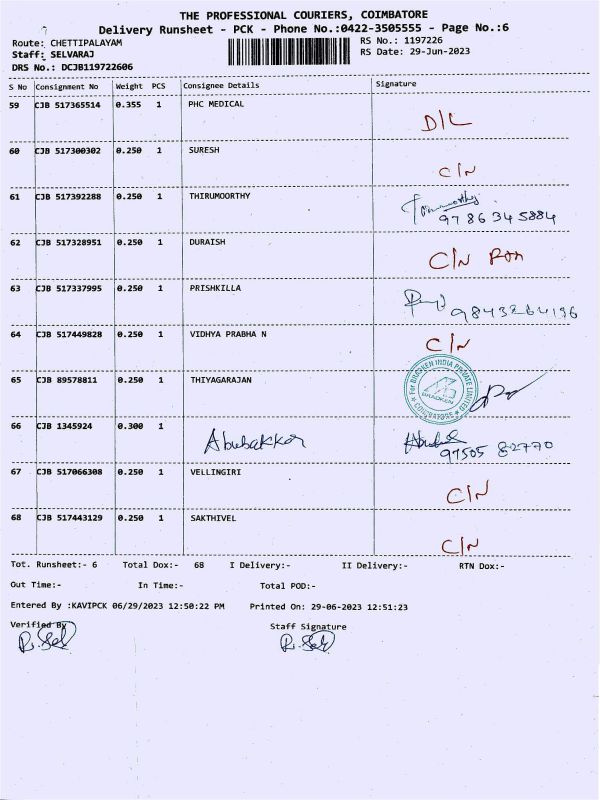 THE PROFESSIONAL COURIERS, COIMBATORE
Delivery Runsheet - PCK - Phone No.:0422-3505555 - Page No.:6
Route: CHETTIPALAYAM RS No.: 1197226
Staff: SELVARAJ RS Date: 29-Jun-2023
DRS No.: DCJB119722606
S No Consignment No Weight PCS Consignee Details Signature
59 CJB 517365514 0.355 1 PHC MEDICAL D/L
60 CJB 517300302 0.250 1 SURESH C/N
61 CJB 517392288 0.250 1 THIRUMOORTHY
9786345884
62 CJB 517328951 0.250 1 DURAISH C/N
63 CJB 517337995 0.250 1 PRISHKILLA
9843264196
64 CJB 517449828 0.250 1 VIDHYA PRABHA N C/N
For BRADKEN INDIA PRIVATE LIMITED
BRADKEN
COIMBATORE
65 CJB 89578811 0.250 1 THIYAGARAJAN
66 CJB 1345924 0.300 1 Abubakkar
97505 82770
67 CJB 517066308 0.250 1 VELLINGIRI C/N
68 CJB 517443129 0.250 1 SAKTHIVEL C/N
Tot. Runsheet:- 6 Total Dox:- 68 I Delivery:- II Delivery:- RTN Dox:-
Out Time:- In Time:- Total POD:-
Entered By :KAVIPCK 06/29/2023 12:50:22 PM Printed On: 29-06-2023 12:51:23
Verified By Staff Signature
R. Sel R. Sel